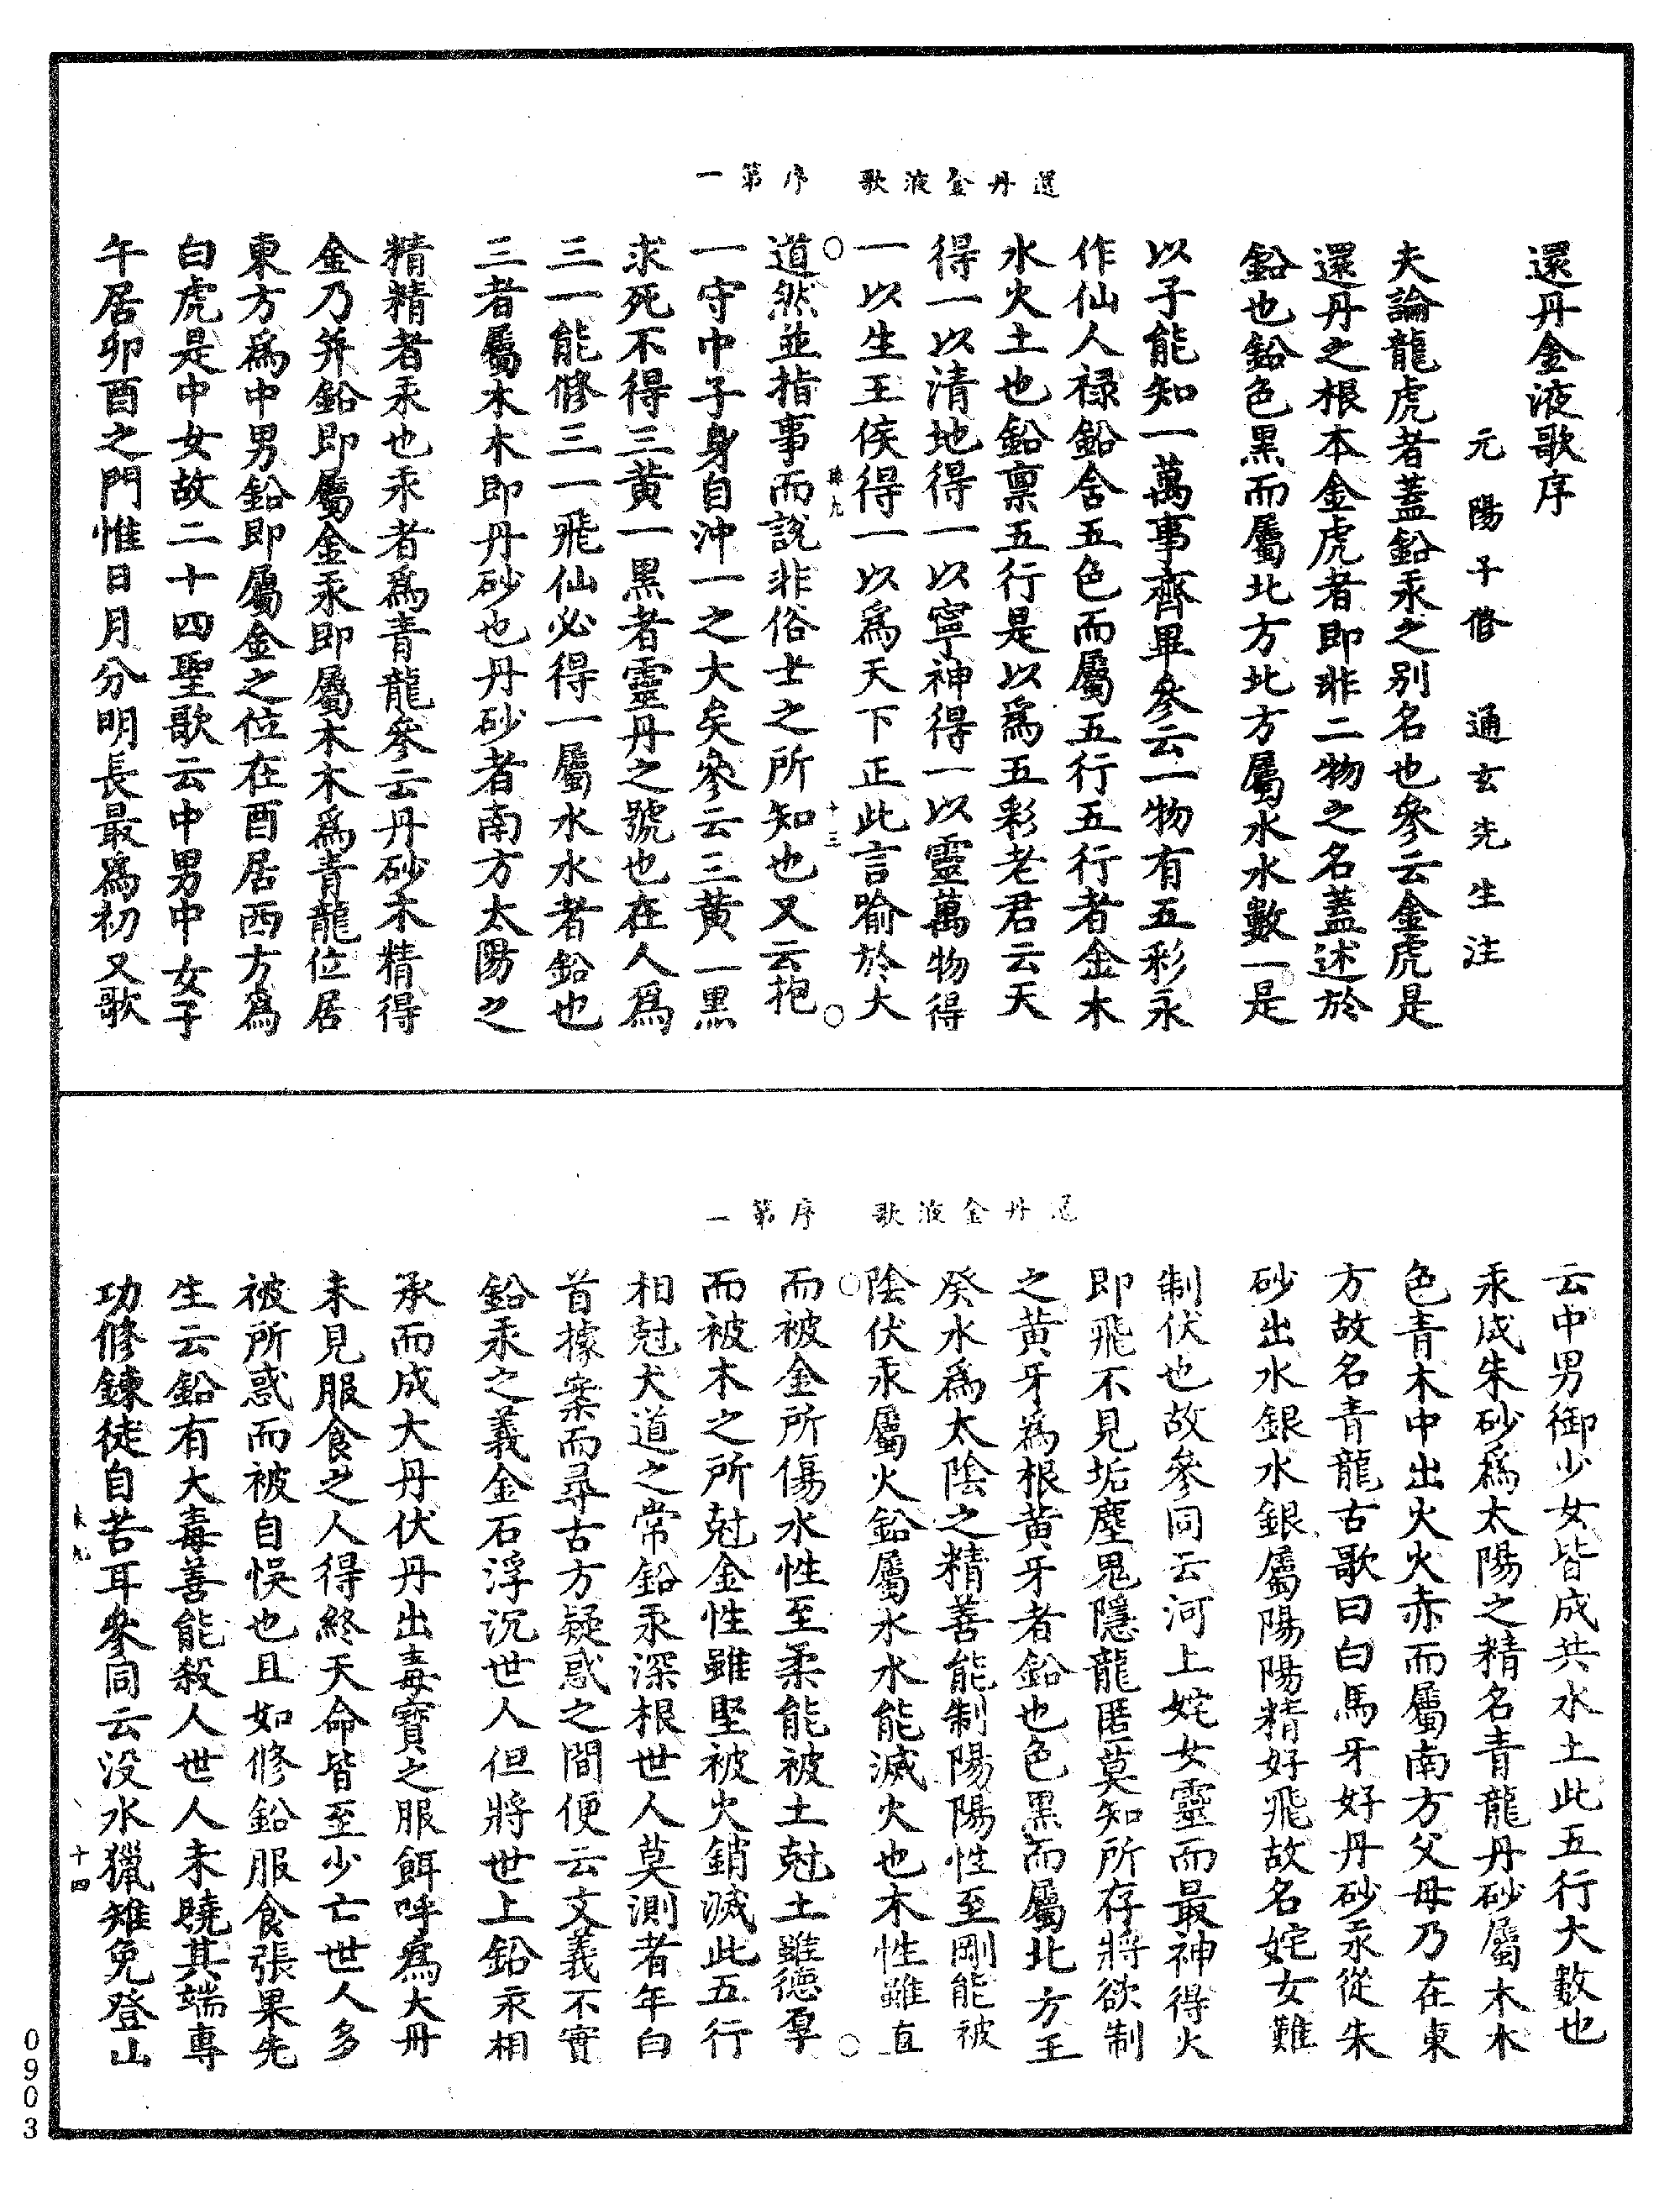 還丹金液歌　序第一
還丹金液歌序
元陽子脩　通玄先生注
夫論龍虎者蓋鉛汞之别名也參云金虎是
還丹之根本金虎者即非二物之名蓋述於
鉛也鉛色黒而屬北方北方屬水水數一是
以子能知一萬事齊畢參云一物有五彩永
作仙人禄鉛含五色而屬五行五行者金木
水火土也鉛禀五行是以爲五彩老君云天
得一以清地得一以寧神得一以靈萬物得
一以生王侯得一以爲天下正此言喻於大
十三
道然並指事而説非俗士之所知也又云抱
一守中子身自沖一之大矣參云三黄一黒
求死不得三黄一黒者靈丹之號也在人爲
三一能修三一飛仙必得一屬水水者鉛也
三者屬木木即丹砂也丹砂者南方太陽之
精精者汞也汞者爲青龍參云丹砂木精得
金乃并鉛即屬金汞即屬木木爲青龍位居
東方爲中男鉛即屬金之位在酉居西方爲
白虎是中女故二十四聖歌云中男中女子
午居卯酉之門惟日月分明長最爲初又歌
還丹金液歌　序第一
云中男御少女皆成共水土此五行大數也
汞成朱砂爲太陽之精名青龍丹砂屬木木
色青木中出火火赤而屬南方父母乃在東
方故名青龍古歌曰白馬牙好丹砂汞從朱
砂出水銀水銀屬陽陽精好飛故名姹女難
制伏也故參同云河上姹女靈而最神得火
即飛不見垢塵鬼隱龍匿莫知所存將欲制
之黄牙爲根黄牙者鉛也色黒而屬北方王
癸水爲太陰之精善能制陽陽性至剛能被
陰伏汞屬火鉛屬水水能滅火也木性雖直
而被金所傷水性至柔能被土尅土雖德厚
而被木之所尅金性雖堅被火銷滅此五行
相尅大道之常鉛汞深根世人莫測者年白
首據案而尋古方疑惑之間便云文義不實
鉛汞之義金石浮沉世人但將世上鉛汞相
承而成大丹伏丹出毒寶之服餌呼爲大丹
未見服食之人得終天命皆至少亡世人多
被所惑而被自悮也且如修鉛服食張果先
生云鉛有大毒善能殺人世人未曉其端專
功修鍊徒自苦耳參同云没水獵雉免登山
十四
0903